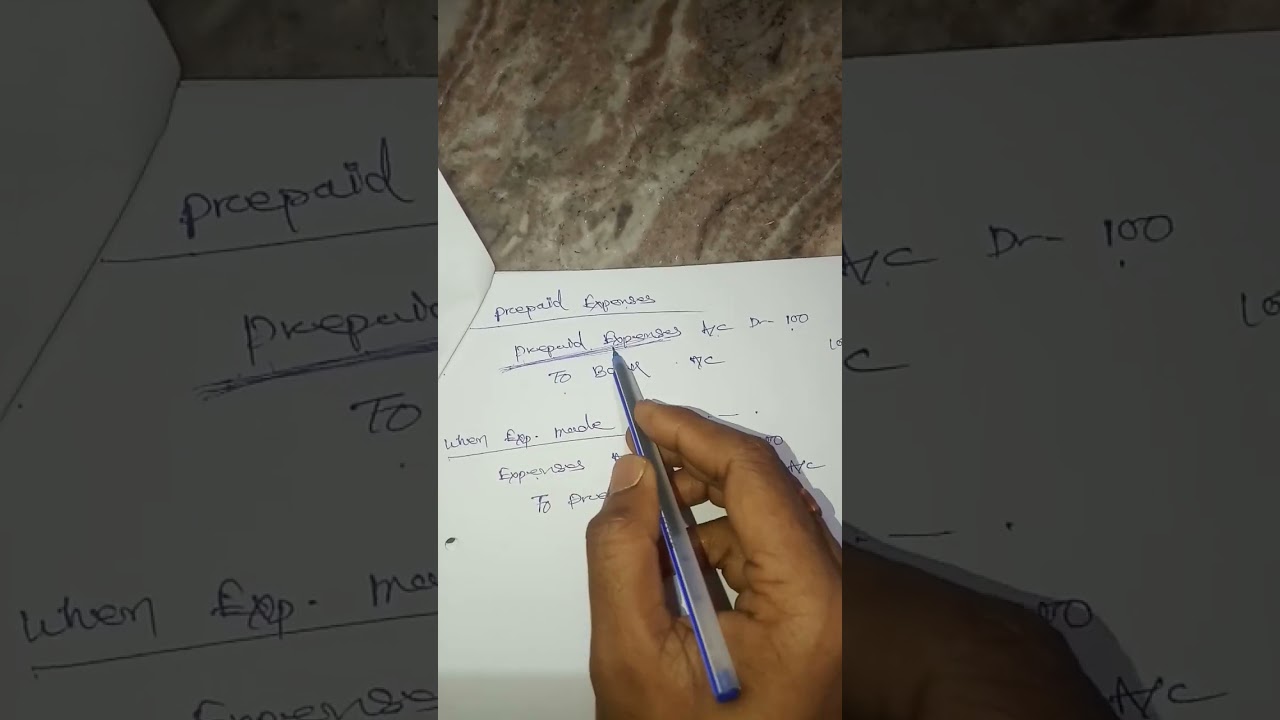 Prepaid Expenses
Prepaid Expenses A/C Dr 100
To Bank A/C
When Exp. made
Expenses
To Pre
A/C